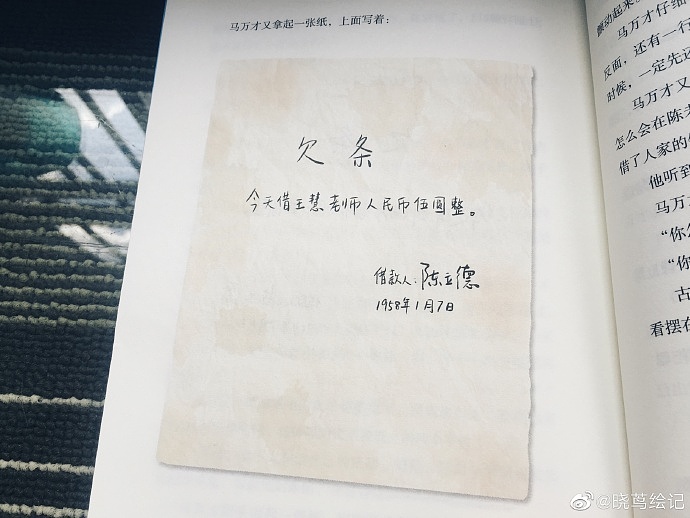 马万才又拿起一张纸，上面写着：
欠条
今天借王慧老师人民币伍圆整。
借款人：陈立德
1958年1月7日
颤动起来
马万才仔细
反面，还有一行
时候，一定先还
马万才又
怎么会在陈老
借了人家的
他听到
马万
“你怎
“你
古
看摆在
@晓茑绘记